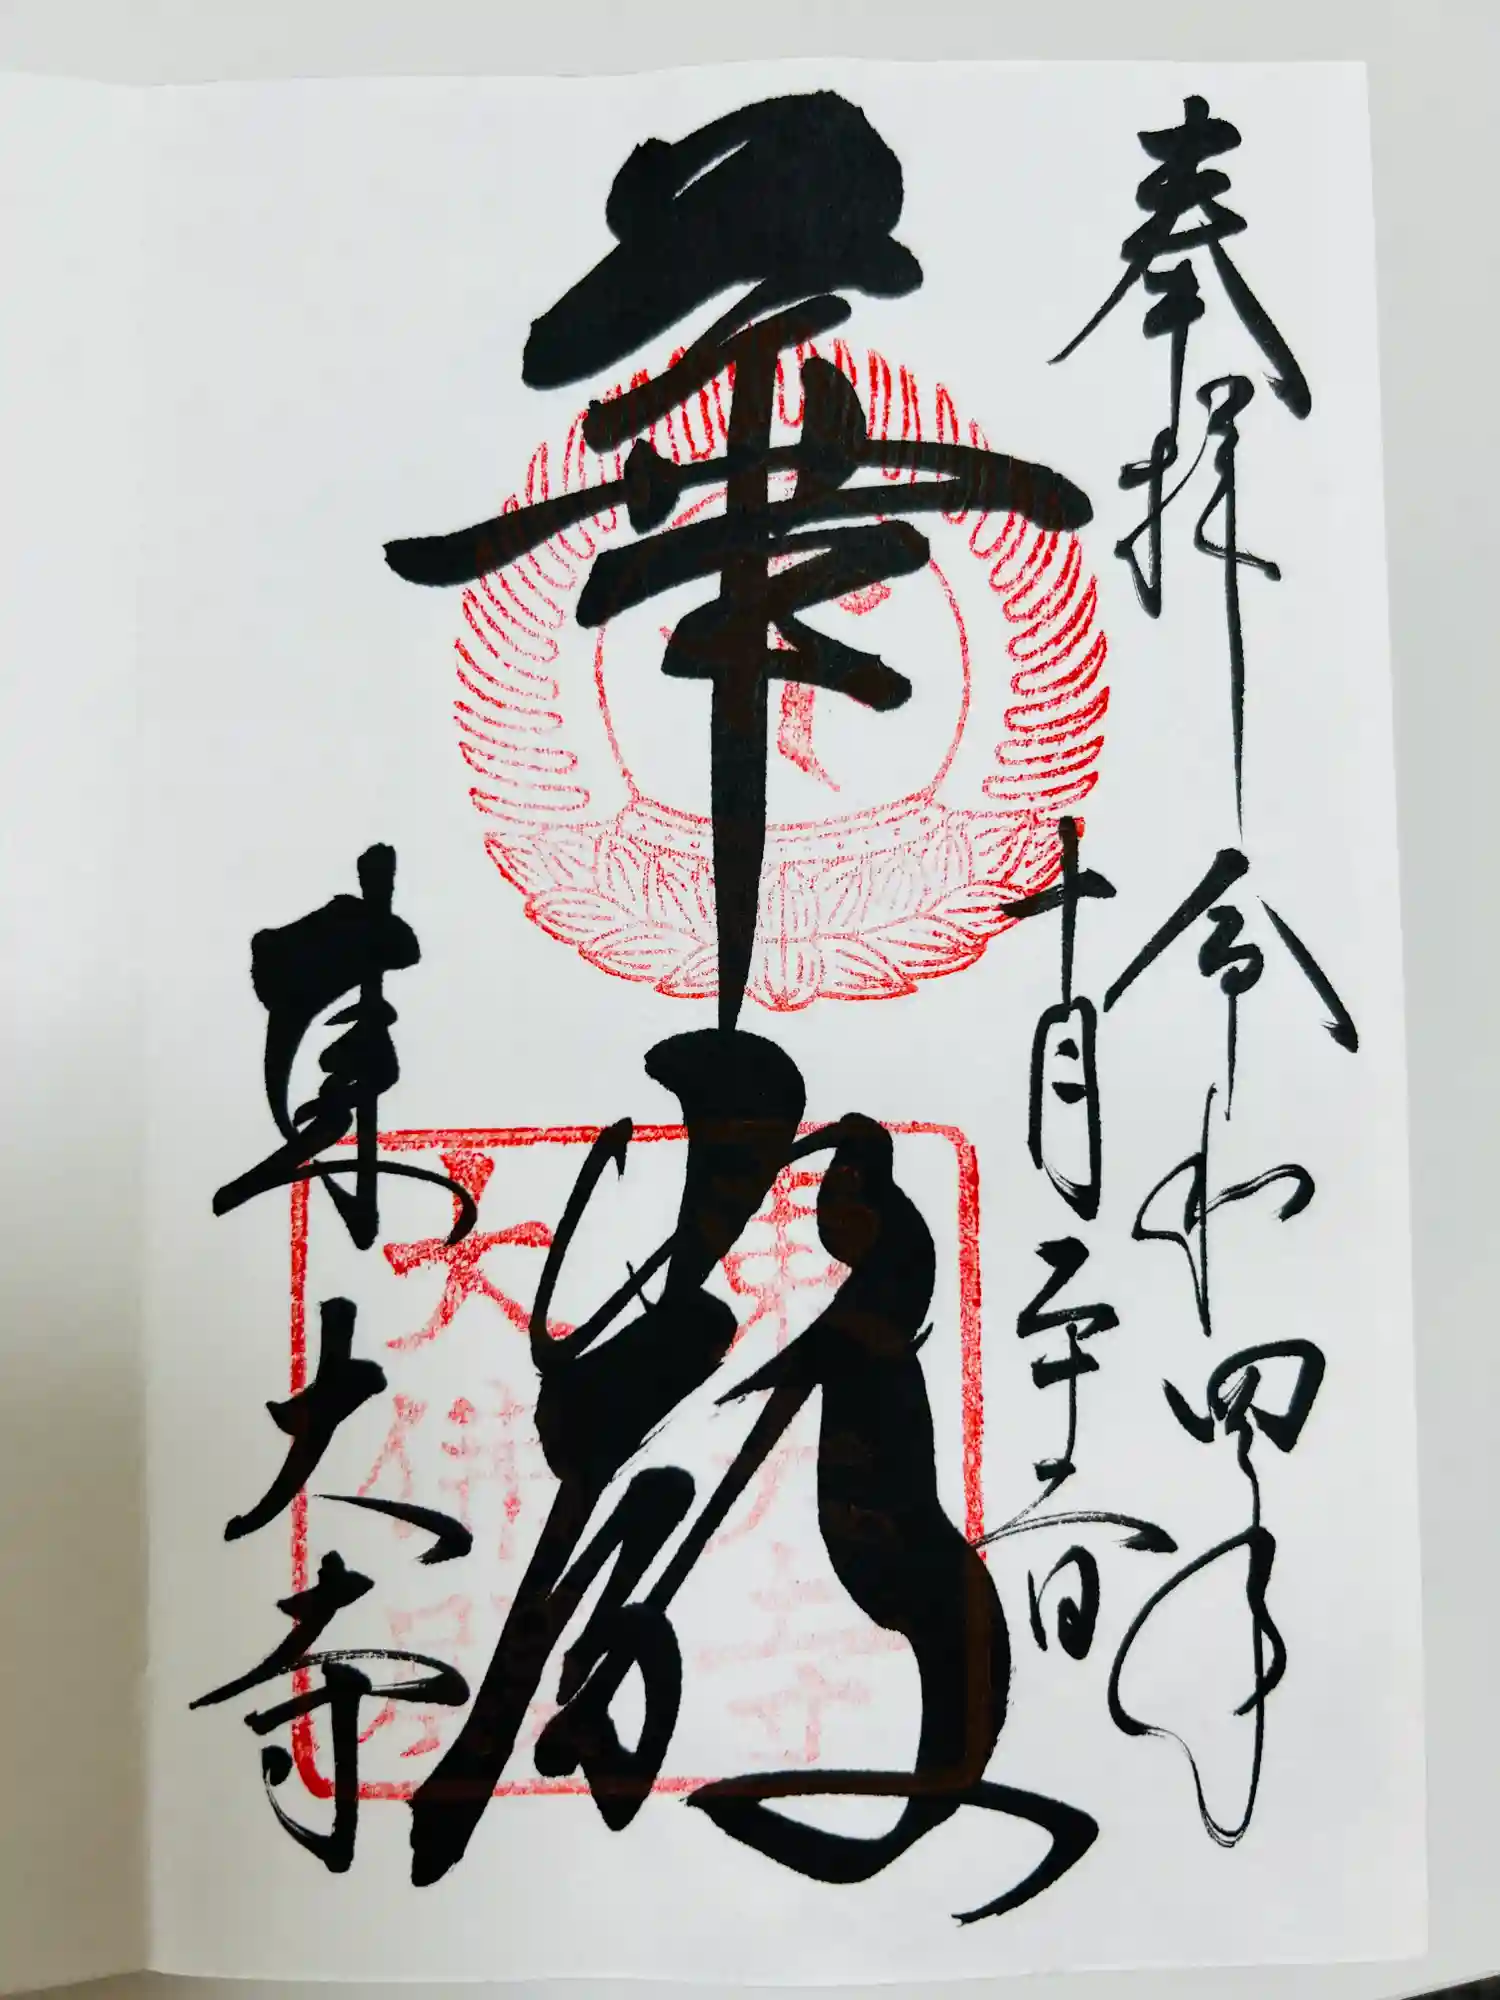 奉拝
令和四年
十月二十日
華厳
東大寺
東大寺
大佛殿